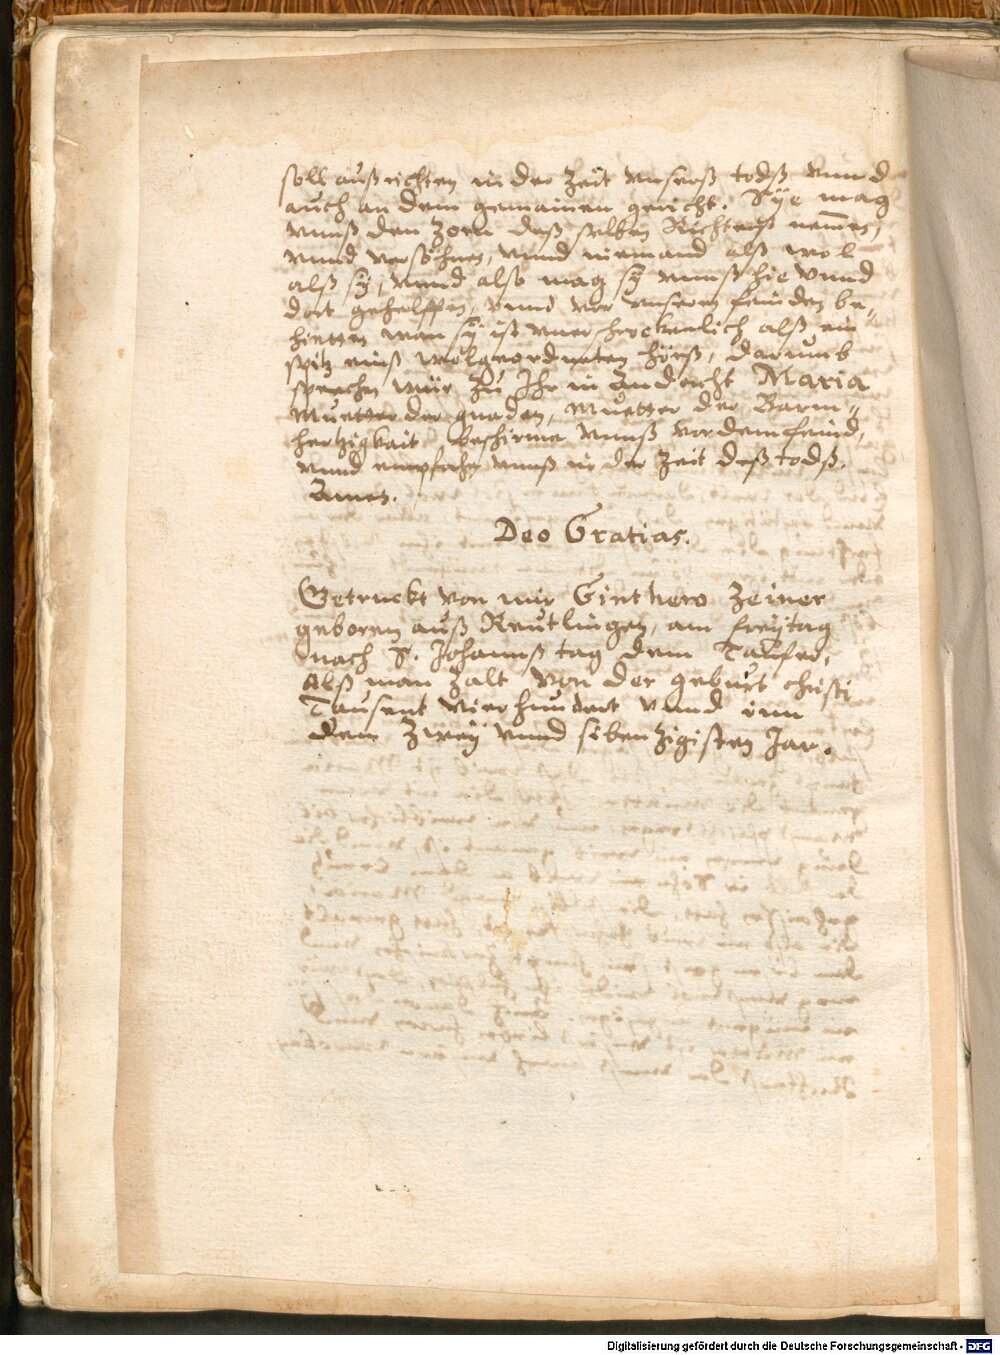 soll außrichten in der Zeit unserß todß unnd
auch an dem gemainen gericht. Sÿe mag
unnß den Zorn deß selben Richterß nemmen,
unnd versöhnen, unnd niemand alß wol
alß sÿ, unnd also mag sÿ unnß hie unnd
dort gehelffen, unnd vor unseren feinden be-
hietten wan sÿ ist unerschrockenlich alß ein
spitz einß wolgeordneten hörß, darumb
sprechen wür zu Ihr in andacht Maria
Muetter der gnaden, Muetter der Barm-
hertzigkait, beschirme unnß vor dem feind,
unnd empfahe unnß in der Zeit deß todß.
Amen.
Deo Gratias.
Getruckt von mir Ginthero Zeiner
geboren auß Reutlingen, am freÿtag
nach S. Johannß tag dem Taufer,
Alß man zalt von der geburt christi
Tausent vierhundert unnd inn
dem Zweÿ unnd sibenzigisten Jar.
Digitalisierung gefördert durch die Deutsche Forschungsgemeinschaft - DFG